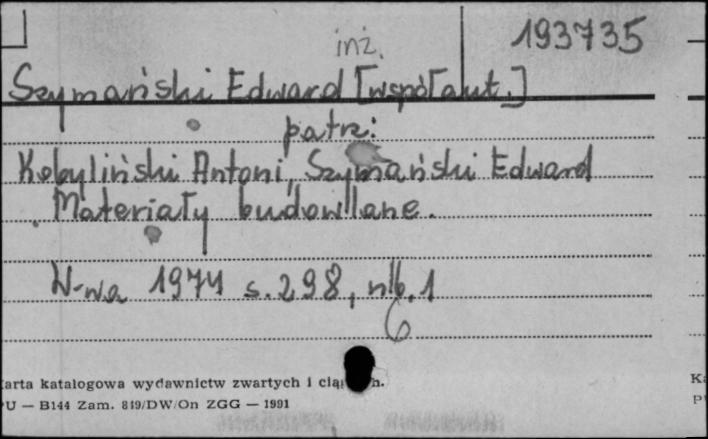 inż. 193735
Szymański Edward [współaut.]
patrz:
Kobyliński Antoni, Szymański Edward
Materiały budowlane.
W-wa 1974 s. 298, nlb. 1
6
Karta katalogowa wydawnictw zwartych i
PU — B144 Zam. 819/DW/On ZGG — 1991